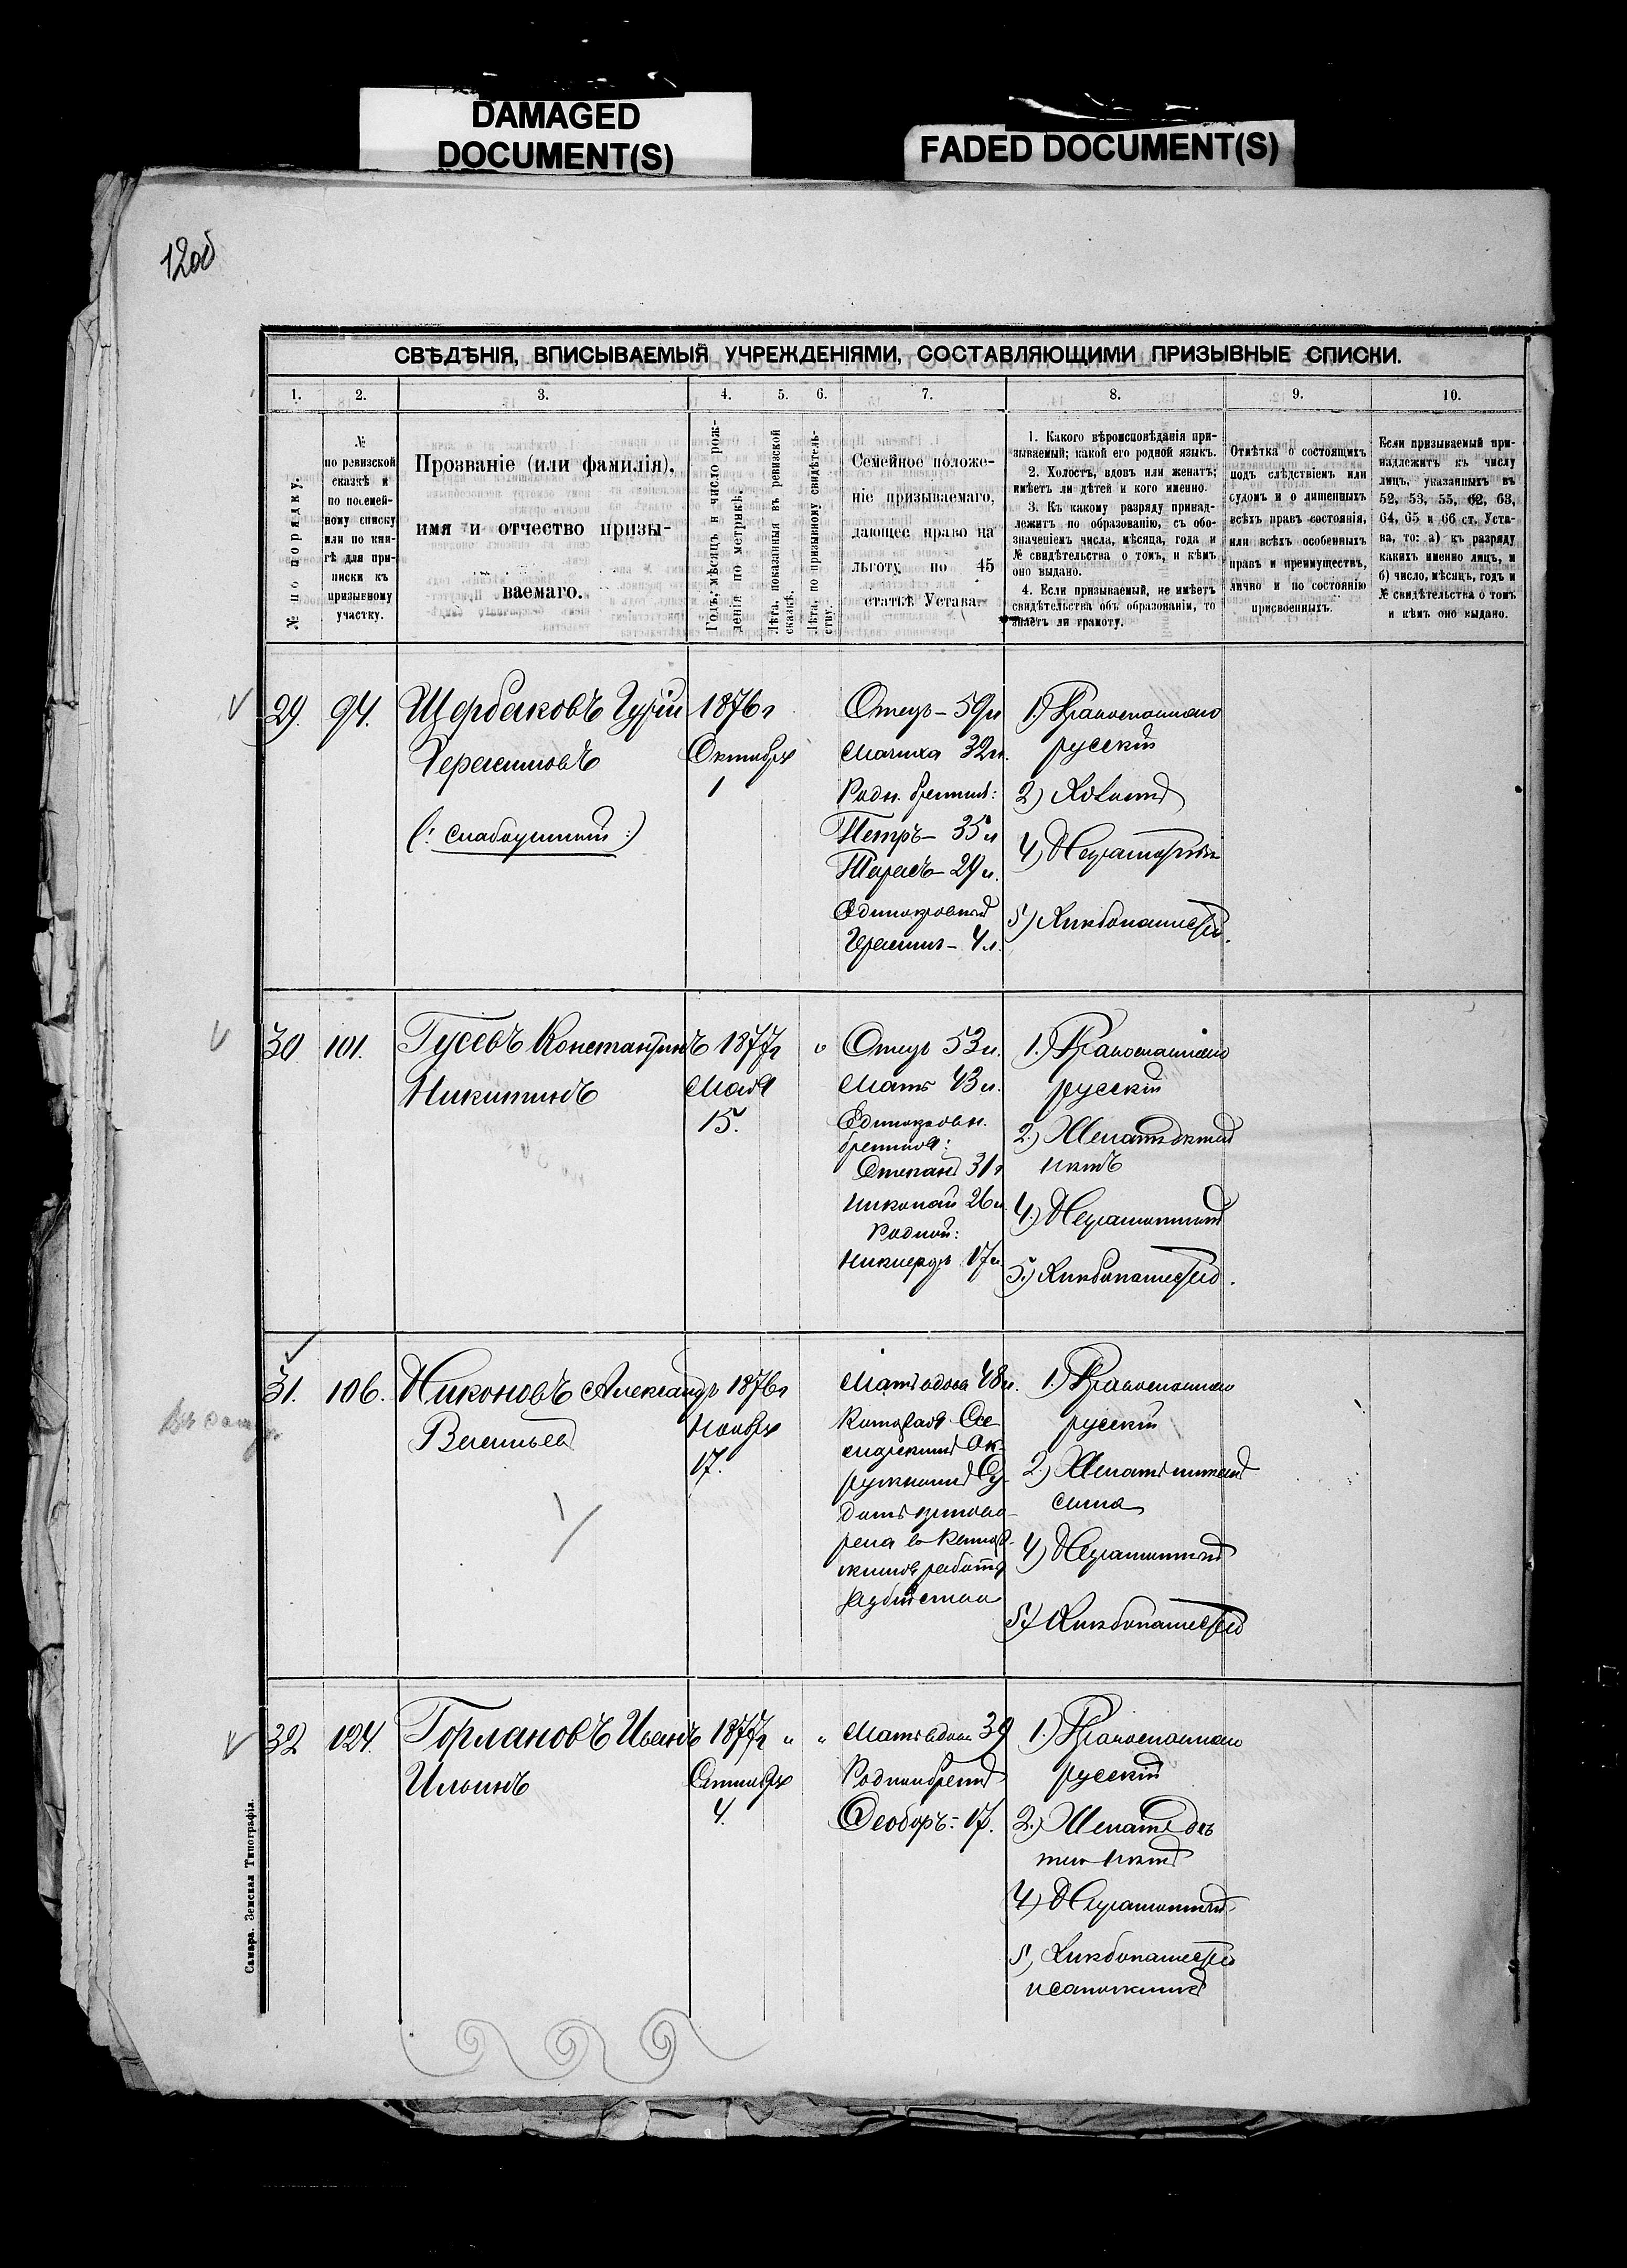 DAMAGED
DOCUMENT(S)
FADED DOCUMENT(S)
12об
СВѢДѢНІЯ, ВПИСЫВАЕМЫЯ УЧРЕЖДЕНІЯМИ, СОСТАВЛЯЮЩИМИ ПРИЗЫВНЫЕ СПИСКИ.
1. 2. 3. 4. 5. 6. 7. 8. 9. 10.
№ по порядку.
№
по ревизской
сказкѣ и
по посемей-
ному списку
или по кни-
гѣ для при-
писки къ
призывному
участку.
Прозваніе (или фамилія),
имя и отчество призы-
ваемаго.
Годъ, мѣсяцъ и число рож-
денія по метрикѣ.
Лѣта, показанныя въ ревизской
сказкѣ.
Лѣта, по призывному свидѣтель-
ству.
Семейное положе-
ніе призываемаго,
дающее право на
льготу по 45
статьѣ Устава.
1. Какого вѣроисповѣданія при-
зываемый; какой его родной языкъ.
2. Холостъ, вдовъ или женатъ;
имѣетъ ли дѣтей и кого именно.
3. Къ какому разряду принад-
лежитъ по образованію, съ обо-
значеніемъ числа, мѣсяца, года и
№ свидѣтельства о томъ, и кѣмъ
оно выдано.
4. Если призываемый, не имѣетъ
свидѣтельства объ образованіи, то
знаетъ ли грамоту.
Отмѣтка о состоящихъ
подъ слѣдствіемъ или
судомъ и о лишенныхъ
всѣхъ правъ состоянія,
или всѣхъ особенныхъ
правъ и преимуществъ,
лично и по состоянію
присвоенныхъ.
Если призываемый при-
надлежитъ къ числу
лицъ, указанныхъ въ
52, 53, 55, 62, 63,
64, 65 и 66 ст. Уста-
ва, то: а) къ разряду
какихъ именно лицъ, и
б) число, мѣсяцъ, годъ и
№ свидѣтельства о томъ
и кѣмъ оно выдано.
29. 94. Щербаковъ Гурій
Герасимовъ
(: слабоумный :)
1876г
Октября
1
Отецъ – 59л
Мачиха 32л.
Родн. братья:
Петръ – 35л
Тарасъ – 29л.
Единокровный
Герасимъ – 4л.
1.) Православнаго
русскій
2) Холостъ
4) Неграмотный
5) Хлѣбопашество.
30 101. Гусевъ Константинъ
Никитинъ
1877г
Мая
15.
Отецъ 53л.
Мать 43л.
Единокровн.
братья:
Степанъ 31г
Николай 26л.
Родной:
Никифоръ 17л.
1.) Православнаго
русскій
2.) Женатъ дѣтей
нѣтъ
4.) Неграмотный
5.) Хлѣбопашество.
31. 106. Никоновъ Александръ
Васильевъ
1876г
Ноября
17.
Мать вдова 48л.
Которая
1.) Православнаго
русскій
2.) Женатъ имѣетъ
сына
4) Неграмотный
5) Хлѣбопашество
32 124. Горлановъ Иванъ
Ильинъ
1877г " "
Сентября
4.
Мать вдова 39
Родной братъ
Феодоръ – 17.
1.) Православнаго
русскій
2.) Женатъ дѣ
тей нѣтъ
4) Неграмотный
5) Хлѣбопашество
и сапожникъ
Самара. Земская Типографія.